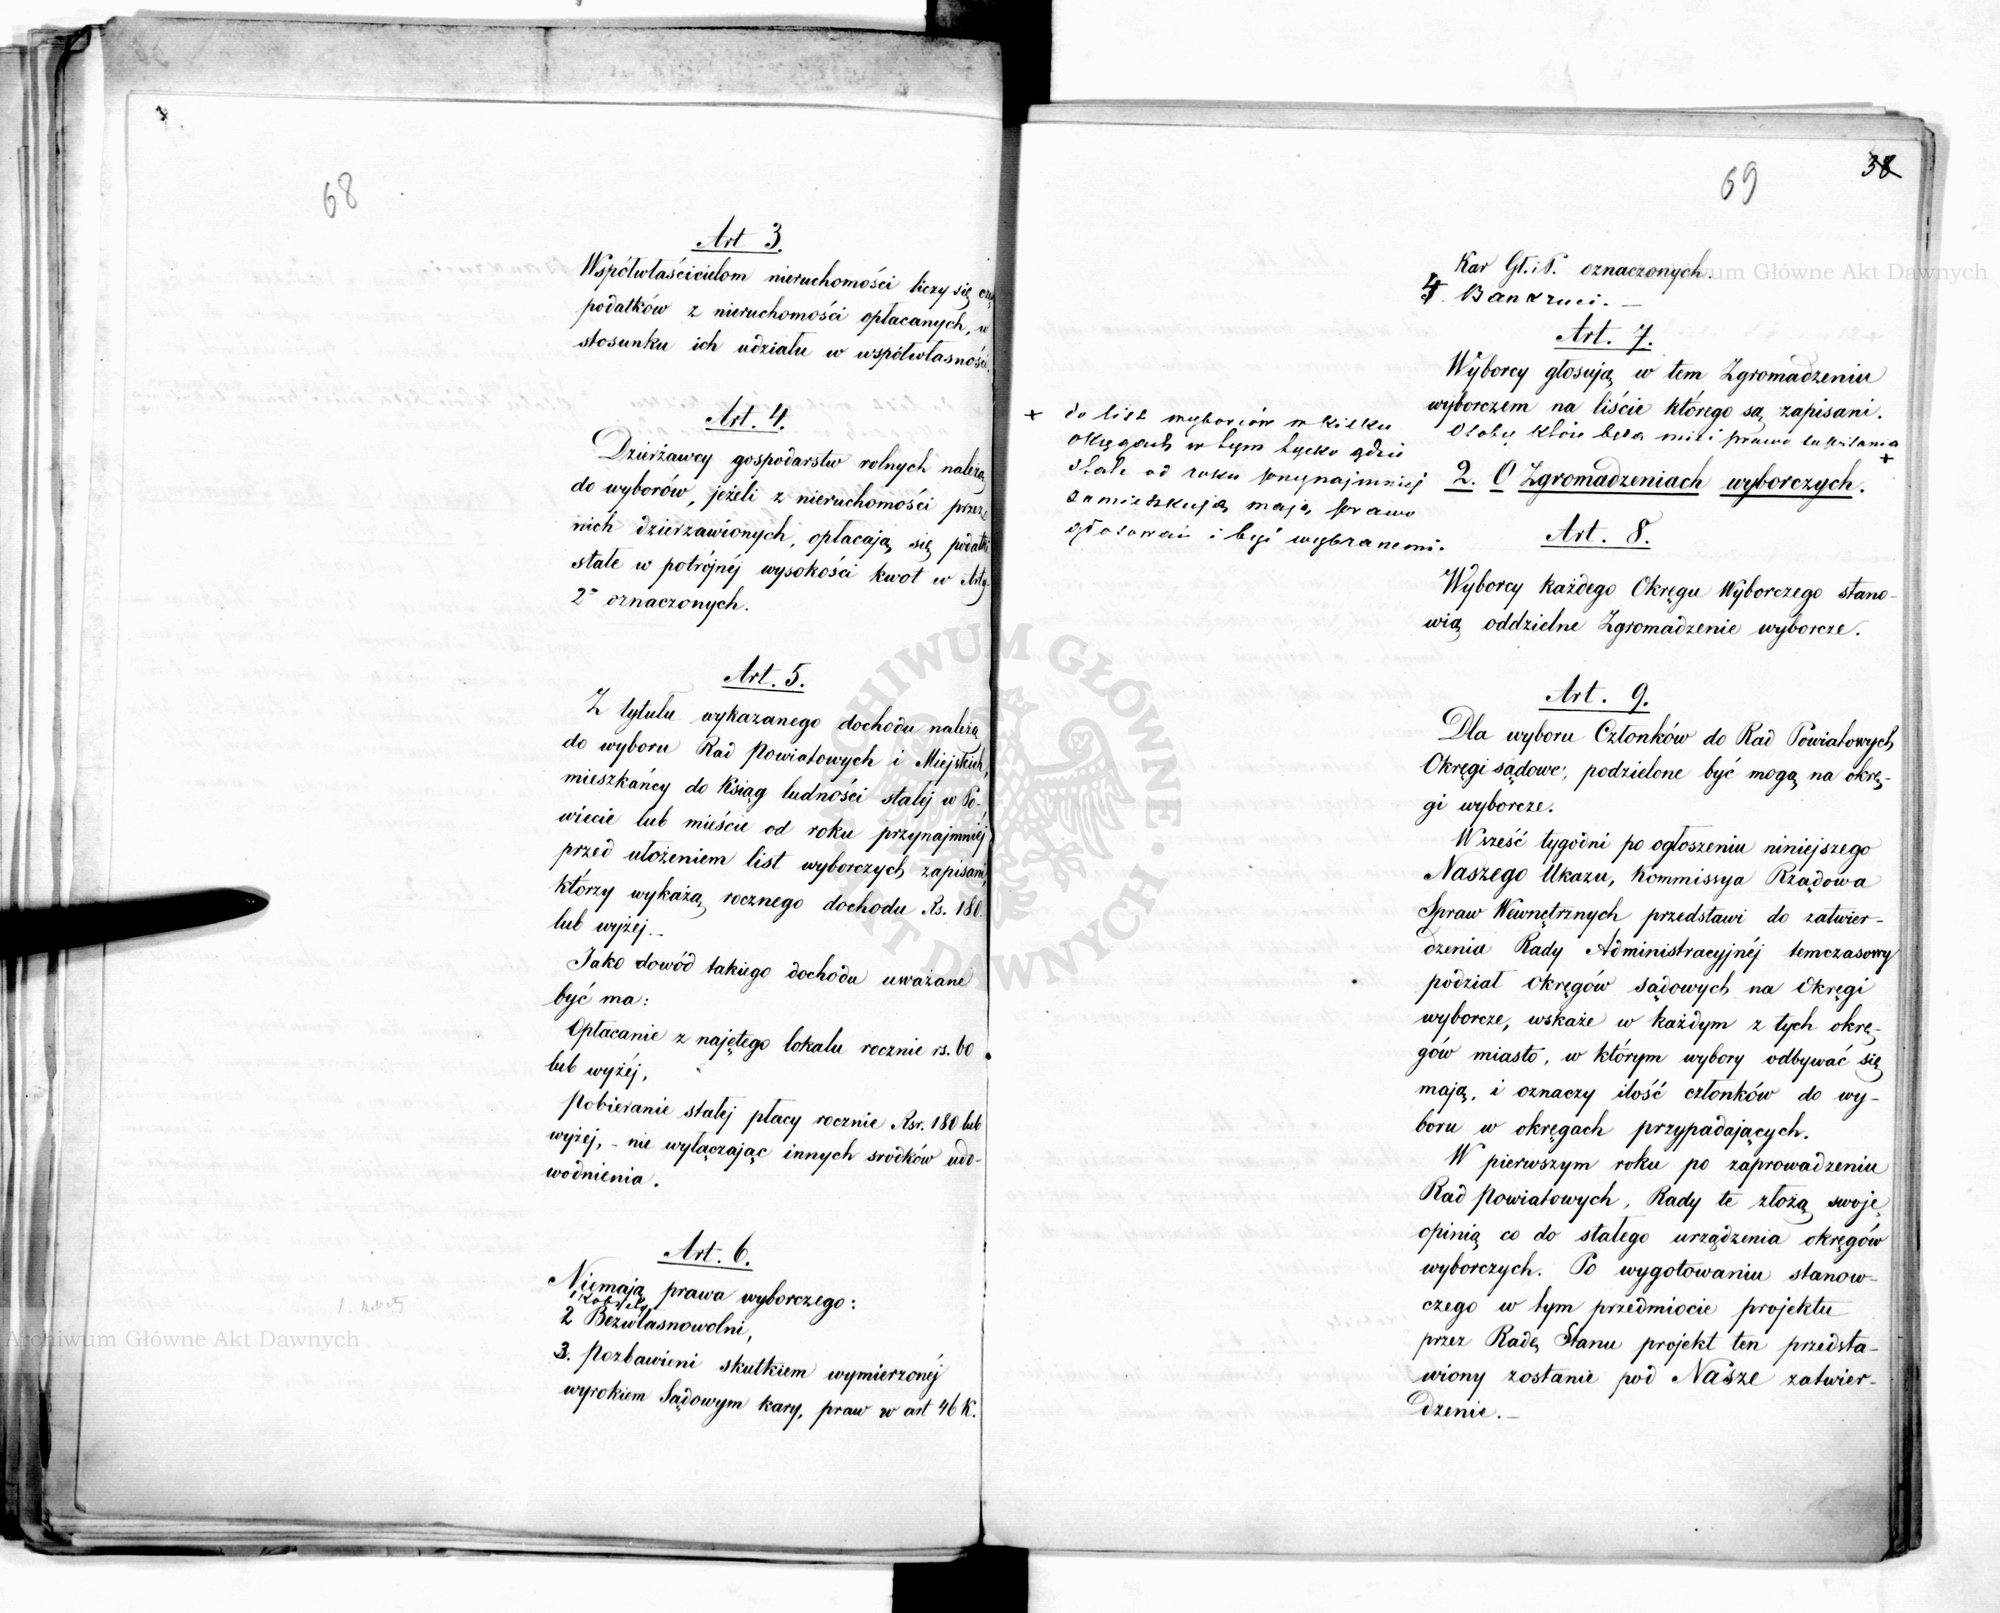 68
Art 3.
Współwłaścicielom nieruchomości liczy się
podatków z nieruchomości opłacanych, w
stosunku ich udziału w współwłasności.
Art. 4.
Dzierżawcy gospodarstw rolnych należą
do wyborów, jeżeli z nieruchomości przez
nich dzierżawionych, opłacają się podatki
stałe w potrójnéj wysokości kwot w Art.
2m oznaczonych.
Art. 5.
Z tytułu wykazanego dochodu należą
do wyboru Rad Powiatowych i Miejskich,
mieszkańcy do Ksiąg ludności stałéj w Po-
wiecie lub mieście od roku przynajmniéj
przed ułożeniem list wyborczych zapisani,
którzy wykażą rocznego dochodu Rs. 180.
lub wyżéj.—
Jako dowód takiego dochodu uważane
być ma:
Opłacanie z najętego lokalu rocznie rs. 60
lub wyżéj,
Pobieranie stałéj płacy rocznie Rsr. 180 lub
wyżéj, - nie wyłączając innych srodków udo-
wodnienia.
Art. 6.
Niemają prawa wyborczego:
1 Kobiety
2 Bezwłasnowolni,
3. Pozbawieni skutkiem wymierzonéj
wyrokiem Sądowym kary, praw w art 46 K.
69
38
Kar Gł. i P. oznaczonych.
4. Bankruci.—
Art. 7.
Wyborcy głosują w tem Zgromadzeniu
wyborczem na liście którego są zapisani.
Osoby które będą mieć prawo
+
+ do list wyborców w kilku
okręgach w tym tylko gdzie
stale od roku przynajmniej
zamieszkują mają prawo
głosować i być wybranemi.
2. O Zgromadzeniach wyborczych.
Art. 8.
Wyborcy każdego Okręgu Wyborczego stano-
wią oddzielne Zgromadzenie wyborcze.
Art. 9.
Dla wyboru Członków do Rad Powiatowych
Okręgi sądowe, podzielone być mogą na okrę-
gi wyborcze.
W sześć tygodni po ogłoszeniu niniejszego
Naszego Ukazu, Kommissya Rządowa
Spraw Wewnętrznych przedstawi do zatwier-
dzenia Rady Administracyjnéj temczasowy
podział Okręgów sądowych na Okręgi
wyborcze, wskaże w każdym z tych okrę-
gów miasto, w którym wybory odbywać się
mają, i oznaczy ilość członków do wy-
boru w okręgach przypadających.
W pierwszym roku po zaprowadzeniu
Rad Powiatowych, Rady te złożą swoję
opinią co do stałego urządzenia okręgów
wyborczych. Po wygotowaniu stanow-
czego w tym przedmiocie projektu
przez Radę Stanu projekt ten przedsta-
wiony zostanie pod Nasze zatwier-
dzenie.—
Archiwum Główne Akt Dawnych
Archiwum Główne Akt Dawnych
ARCHIWUM GŁÓWNE AKT DAWNYCH